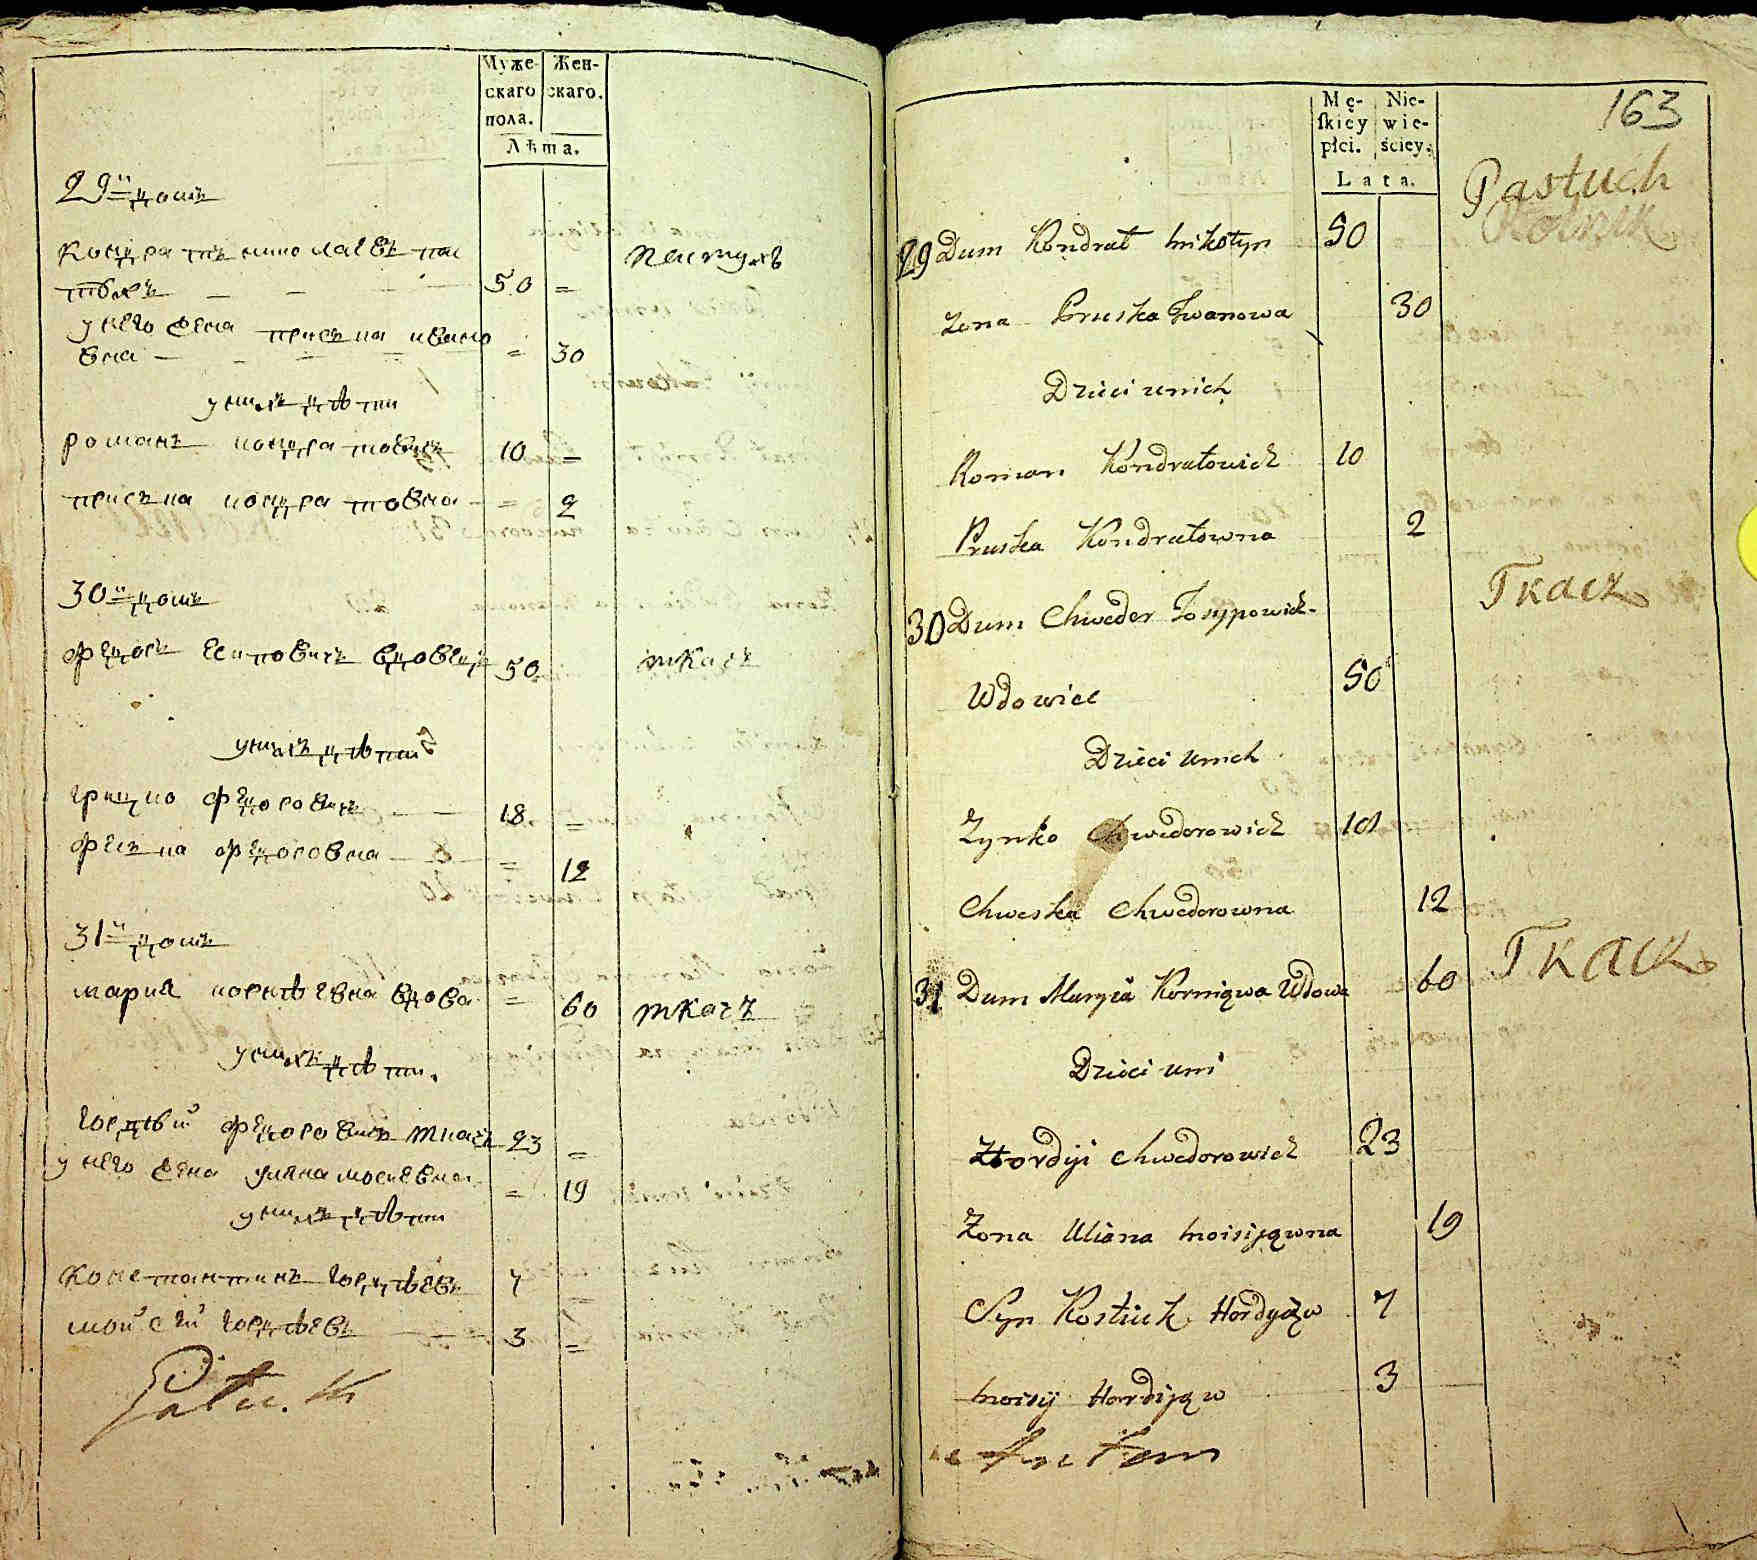 Муже-
скаго
пола.
Жен-
скаго.
Лѣта.
29й домъ
Кондратъ николаевъ пас
тухъ 50 = пастухъ
у него жена приська ивано
вна = 30
у нихъ дѣти
романъ кондратовичъ 10 =
приська кондратовна = 2
30й домъ
федоръ есиповичъ вдовецъ 50 ткачъ
у нихъ дѣти
грицко федоровичъ 18 =
феська федоровна = 12
31й домъ
мария корнѣевна вдова = 60 ткачъ
у нихъ дѣти.
гордѣй федоровичъ ткачъ 23 =
у него жена уляна мосиевна = 19
у нихъ дѣти
константинъ гордѣевъ 7 =
мойсей гордѣевъ 3 =
Mę-
ſkiéy
płci.
Nie-
wie-
ściey.
Lata.
163
Pastuch
Rolnik
29 Dum Kondrat Mikołyn 50
żona Pruska Iwanowa 30
Dzieci u nich
Roman Kondratowicz 10
Pruska Kondratowna 2
Tkacz
30 Dum Chweder Josypowicz
Wdowiec 50
Dzieci u nich
Chwedorowicz
Chweska Chwedorowna 12
Tkacz
31 Dum Maryia Korniqwa Wdowa 60
Dzieci u ni
Hordyi Chwedorowicz 23
Żona Uliana Moisijqwna 19
Syn Kostiuk Hordyqw 7
Moisij Hordijqw 3